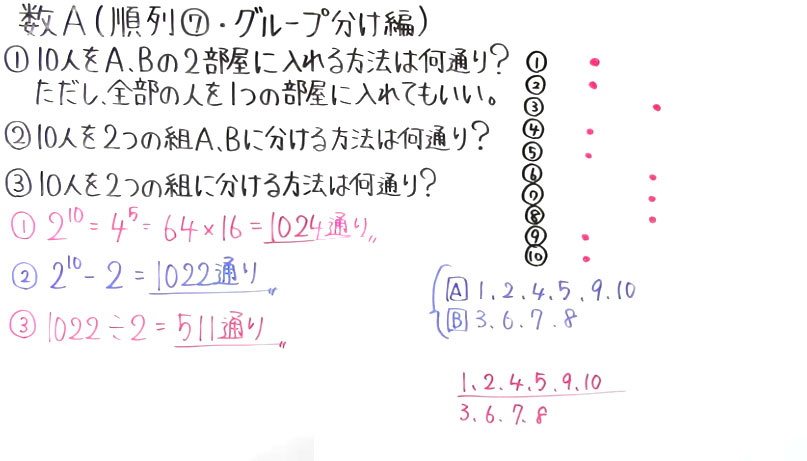 数A(順列⑦・グループ分け編)
①10人をA、Bの2部屋に入れる方法は何通り?
ただし、全部の人を1つの部屋に入れてもいい。
②10人を2つの組A、Bに分ける方法は何通り?
③10人を2つの組に分ける方法は何通り?
① 2¹⁰ = 4⁵ = 64×16 = 1024通り〃
② 2¹⁰ - 2 = 1022通り〃
③ 1022÷2 = 511通り〃
①
②
③
④
⑤
⑥
⑦
⑧
⑨
⑩
A 1、2、4、5、9、10
B 3、6、7、8
1、2、4、5、9、10
3、6、7、8